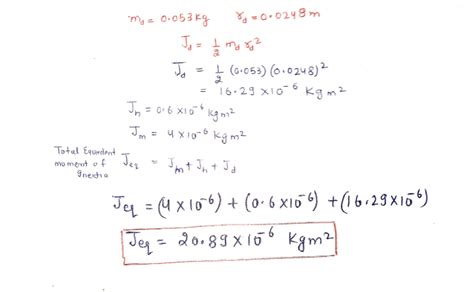 m_d = 0.053kg   r_d = 0.0248m
J_d = 1/2 m_d r_d²
J_d = 1/2 (0.053)(0.0248)²
= 16.29 × 10⁻⁶ Kgm²
J_h = 0.6×10⁻⁶ kgm²
J_m = 4×10⁻⁶ kgm²
Total Equivalent
moment of
Inertia
J_eq = J_m + J_h + J_d
J_eq = (4×10⁻⁶) + (0.6×10⁻⁶) + (16.29×10⁻⁶)
J_eq = 20.89 × 10⁻⁶ Kgm²